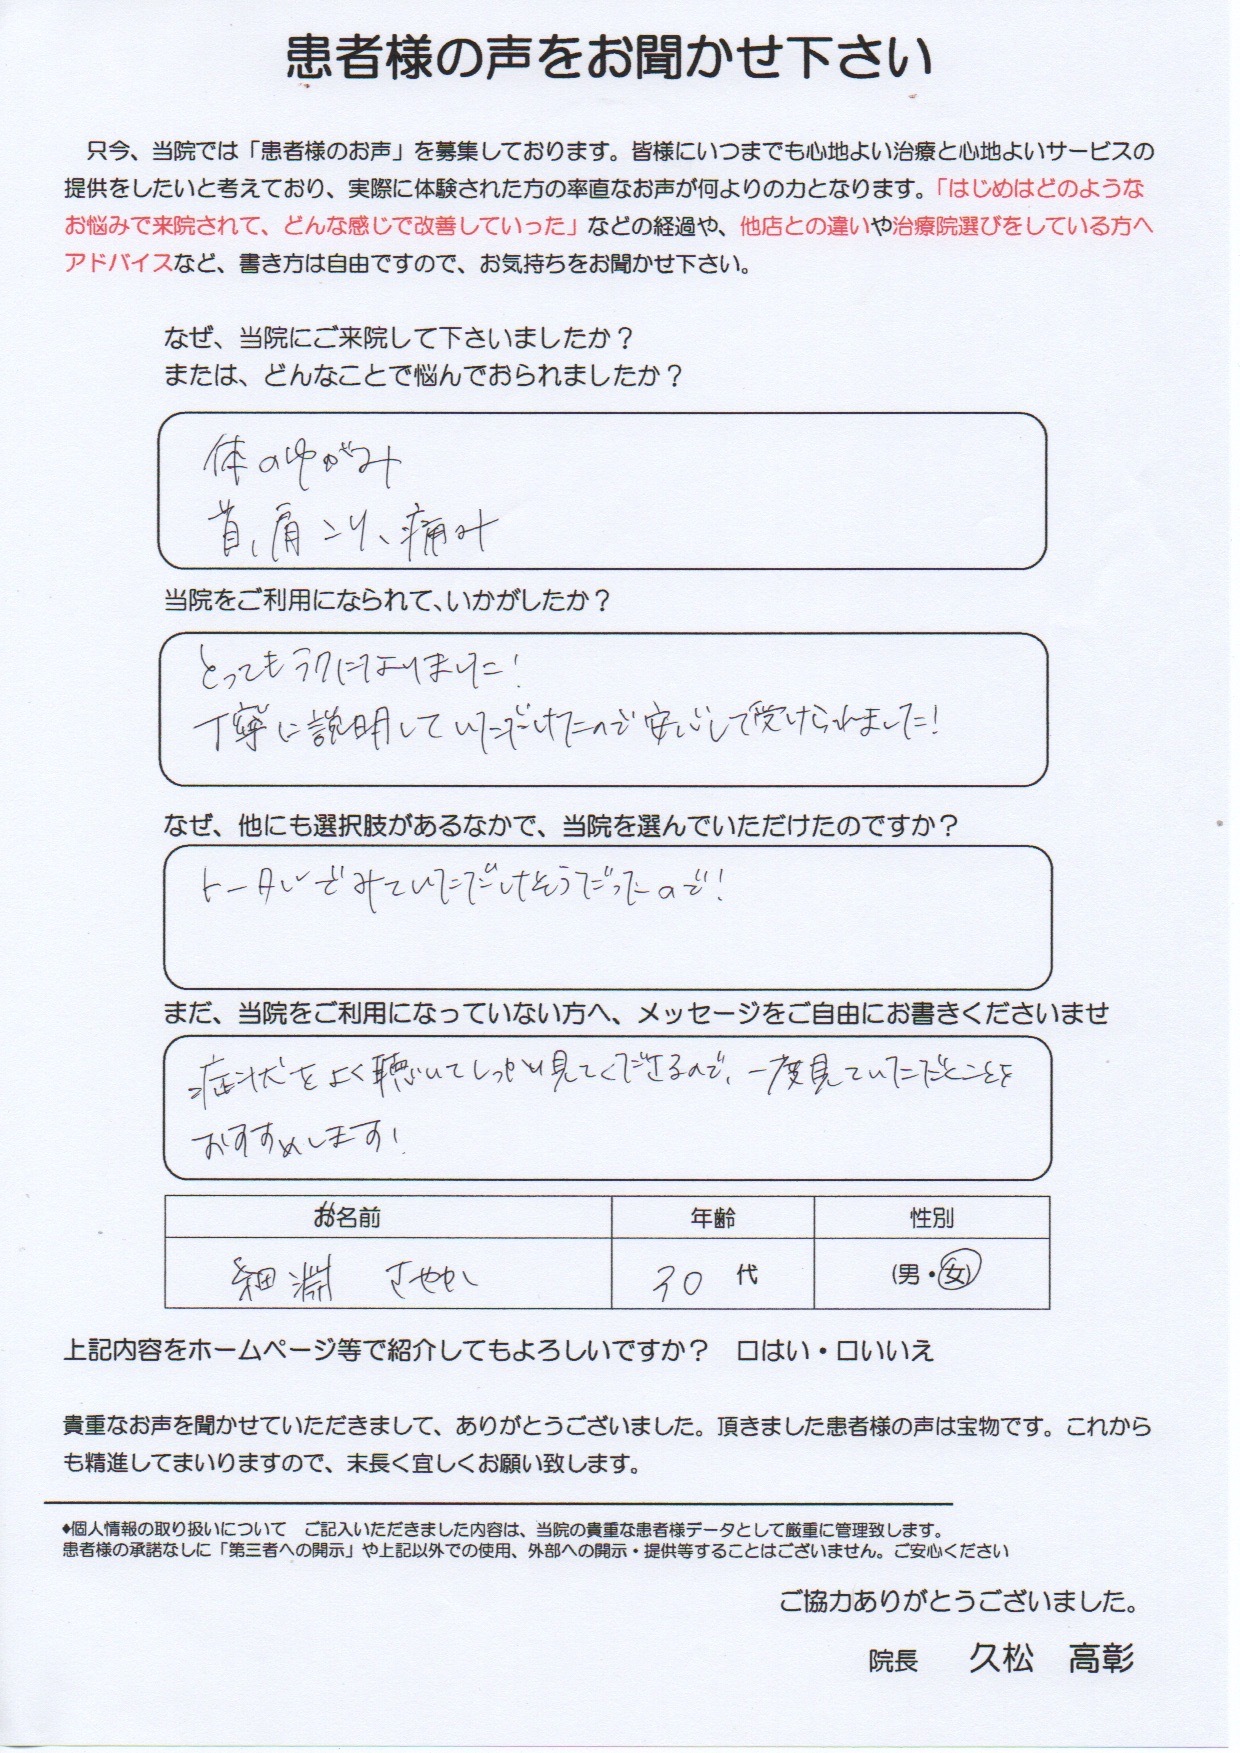 患者様の声をお聞かせ下さい
只今、当院では「患者様のお声」を募集しております。皆様にいつまでも心地よい治療と心地よいサービスの
提供をしたいと考えており、実際に体験された方の率直なお声が何よりの力となります。「はじめはどのような
お悩みで来院されて、どんな感じで改善していった」などの経過や、他店との違いや治療院選びをしている方へ
アドバイスなど、書き方は自由ですので、お気持ちをお聞かせ下さい。
なぜ、当院にご来院して下さいましたか？
または、どんなことで悩んでおられましたか？
体のゆがみ
首、肩こり、痛み
当院をご利用になられて、いかがしたか？
とってもラクになりました！
丁寧に説明していただけたので安心して受けられました！
なぜ、他にも選択肢があるなかで、当院を選んでいただけたのですか？
トータルでみていただけそうだったので！
まだ、当院をご利用になっていない方へ、メッセージをご自由にお書きくださいませ
症状をよく聴いてしっかり見てくださるので、一度見ていただくことを
おすすめします！
お名前 年齢 性別
細淵 さやか 30 代 (男・女)
上記内容をホームページ等で紹介してもよろしいですか？ 口はい・口いいえ
貴重なお声を聞かせていただきまして、ありがとうございました。頂きました患者様の声は宝物です。これから
も精進してまいりますので、末長く宜しくお願い致します。
♦個人情報の取り扱いについて ご記入いただきました内容は、当院の貴重な患者様データとして厳重に管理致します。
患者様の承諾なしに「第三者への開示」や上記以外での使用、外部への開示・提供等することはございません。ご安心ください
ご協力ありがとうございました。
院長 久松 高彰